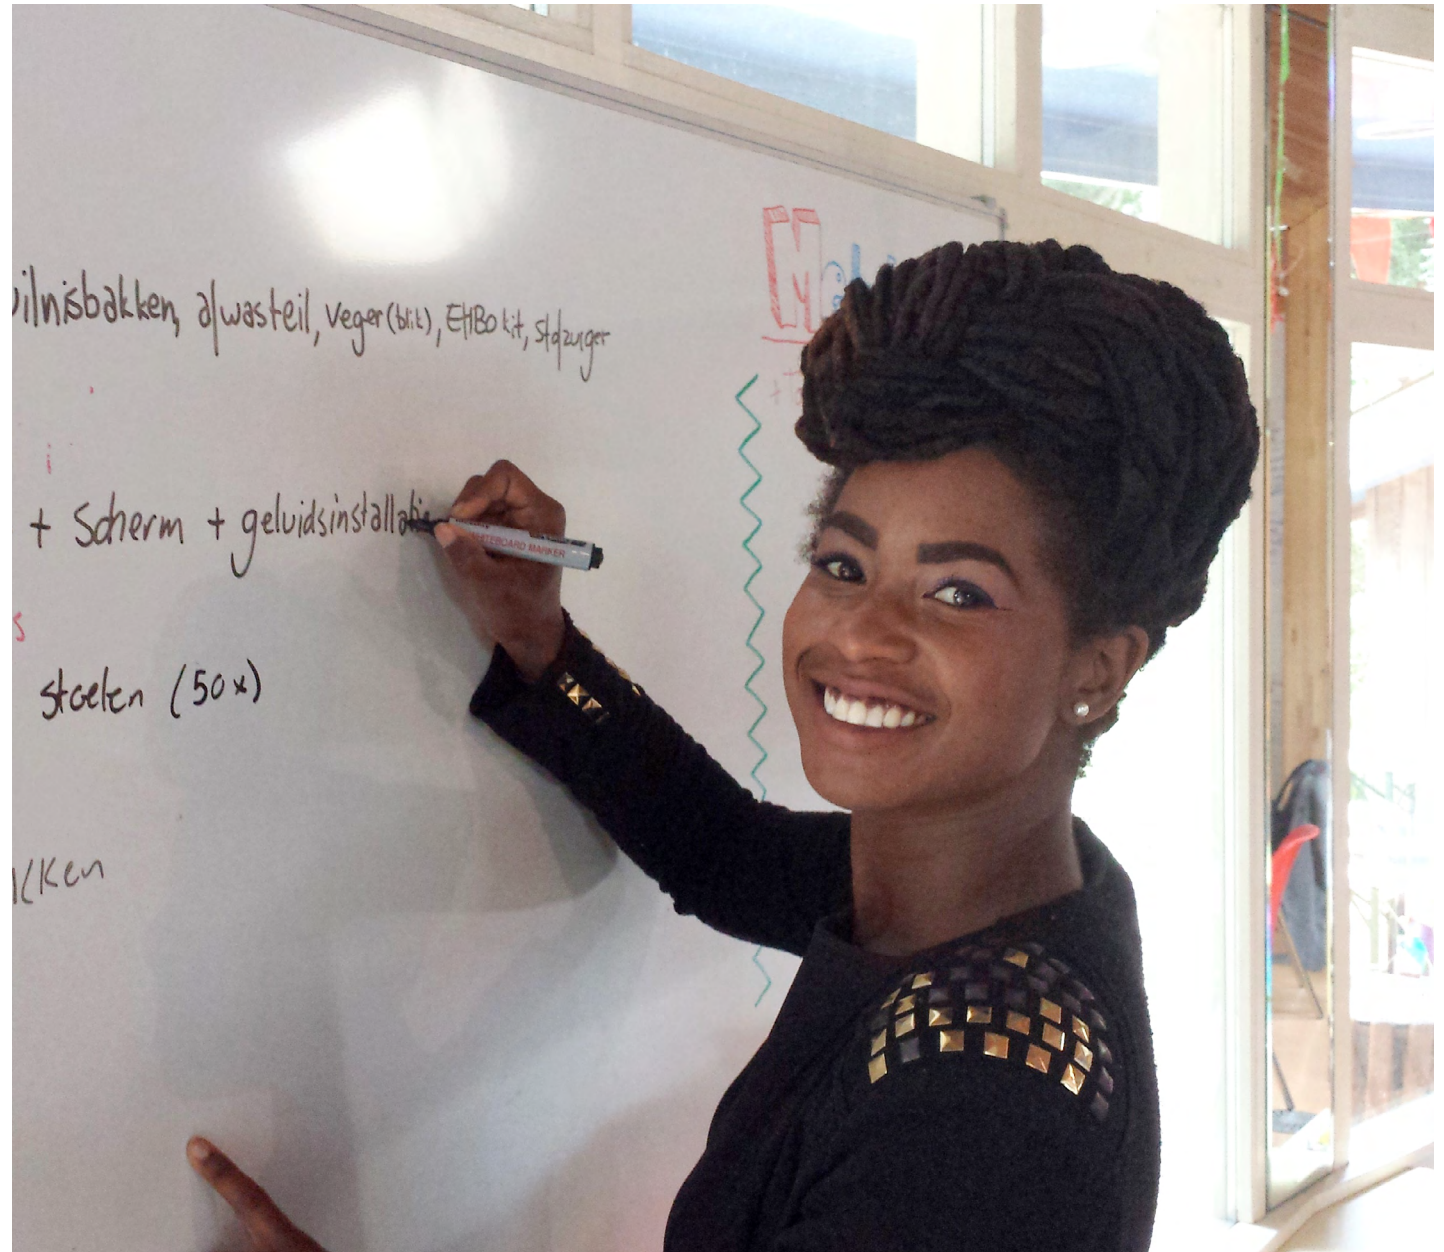 uilnisbakken, afwasteil, veger (blik), EHBO kit, stofzuiger
+ Scherm + geluidsinstallatie
WHITEBOARD MARKER
stoelen (50x)